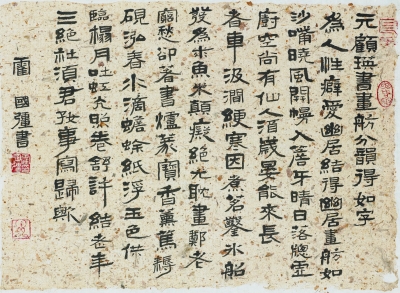 元顧瑛書畫舫分韻得如字
為人性癖愛幽居結得幽居畫舫如
沙嘴曉風開幔入簷牙晴日落牕虛
廚空尚有仙人酒歲晏能來長
者車汲澗綆寒因煮茗鑿冰船
發為求魚米顛癡絕尤耽畫鄭老
窮愁卻著書爐篆寶香薰篤耨
硯泓春水滴蟾蜍紙浮玉色供
臨榻月吐虹光照卷舒許結老年
三絕社須君好事寫歸歟
霍國強書